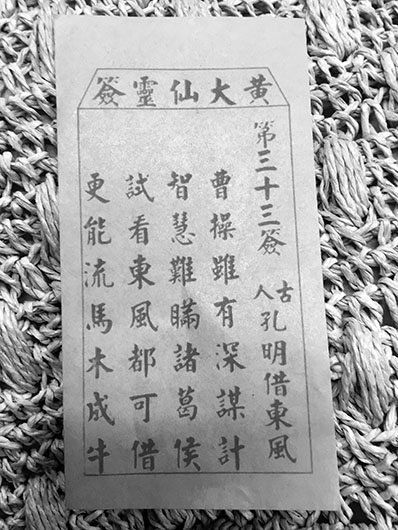 黃大仙靈簽
第三十三簽
古人孔明借東風
曹操雖有深謀計
智慧難瞞諸葛侯
試看東風都可借
更能流馬木成牛